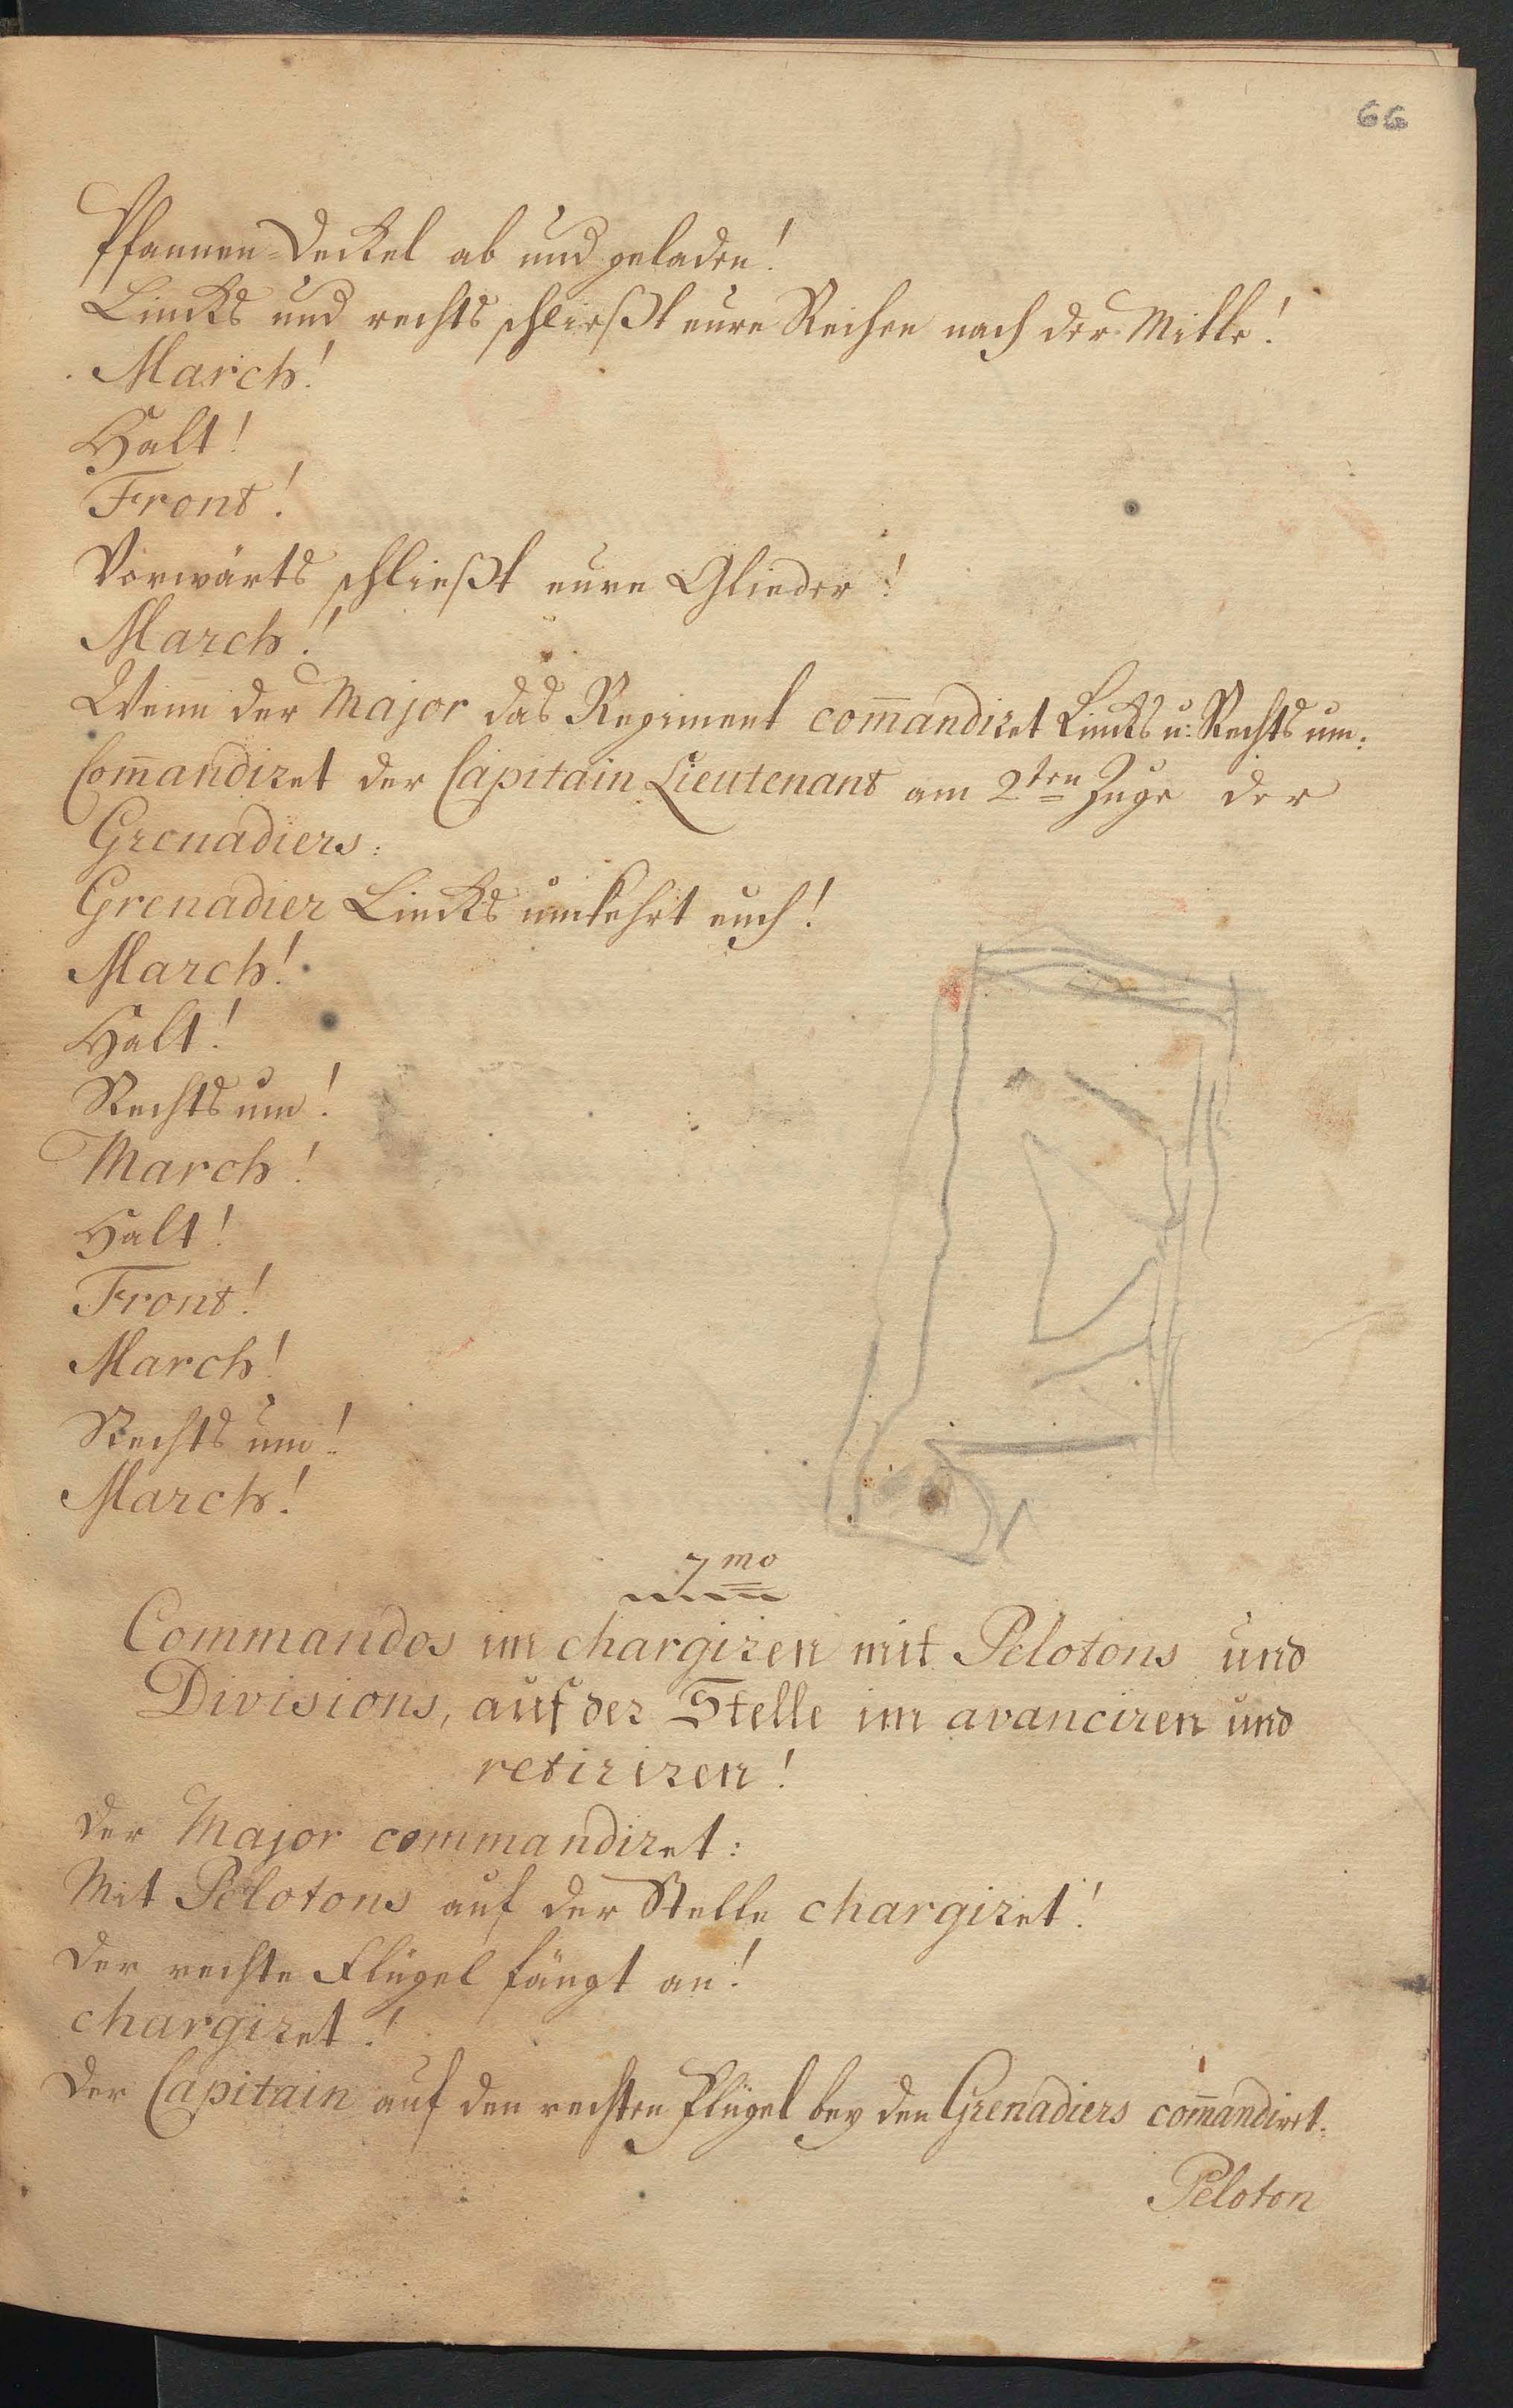 66
Pfannen-Deckel ab und geladen!
Lincks und rechts schließt eure Reihen nach der Mitte!
March!
Halt!
Front!
Vorwärts schließt eure Glieder!
March!
Wenn der Major das Regiment com̄andiret Lincks u: Rechts um:
Com̄andiret der Capitain Lieutenant am 2ten Zuge der
Grenadiers:
Grenadier Lincks umkehrt euch!
March!
Halt!
Rechts um!
March!
Halt!
Front!
March!
Rechts um!
March!
7mo
Commandos im chargiren mit Pelotons und
Divisions, auf der Stelle im avanciren und
retiriren!
Der Major commandiret:
Mit Pelotons auf der Stelle chargiret!
Der rechte Flügel fängt an!
chargiret!
Der Capitain auf den rechten Flügel bey den Grenadiers com̄andiret:
Peloton